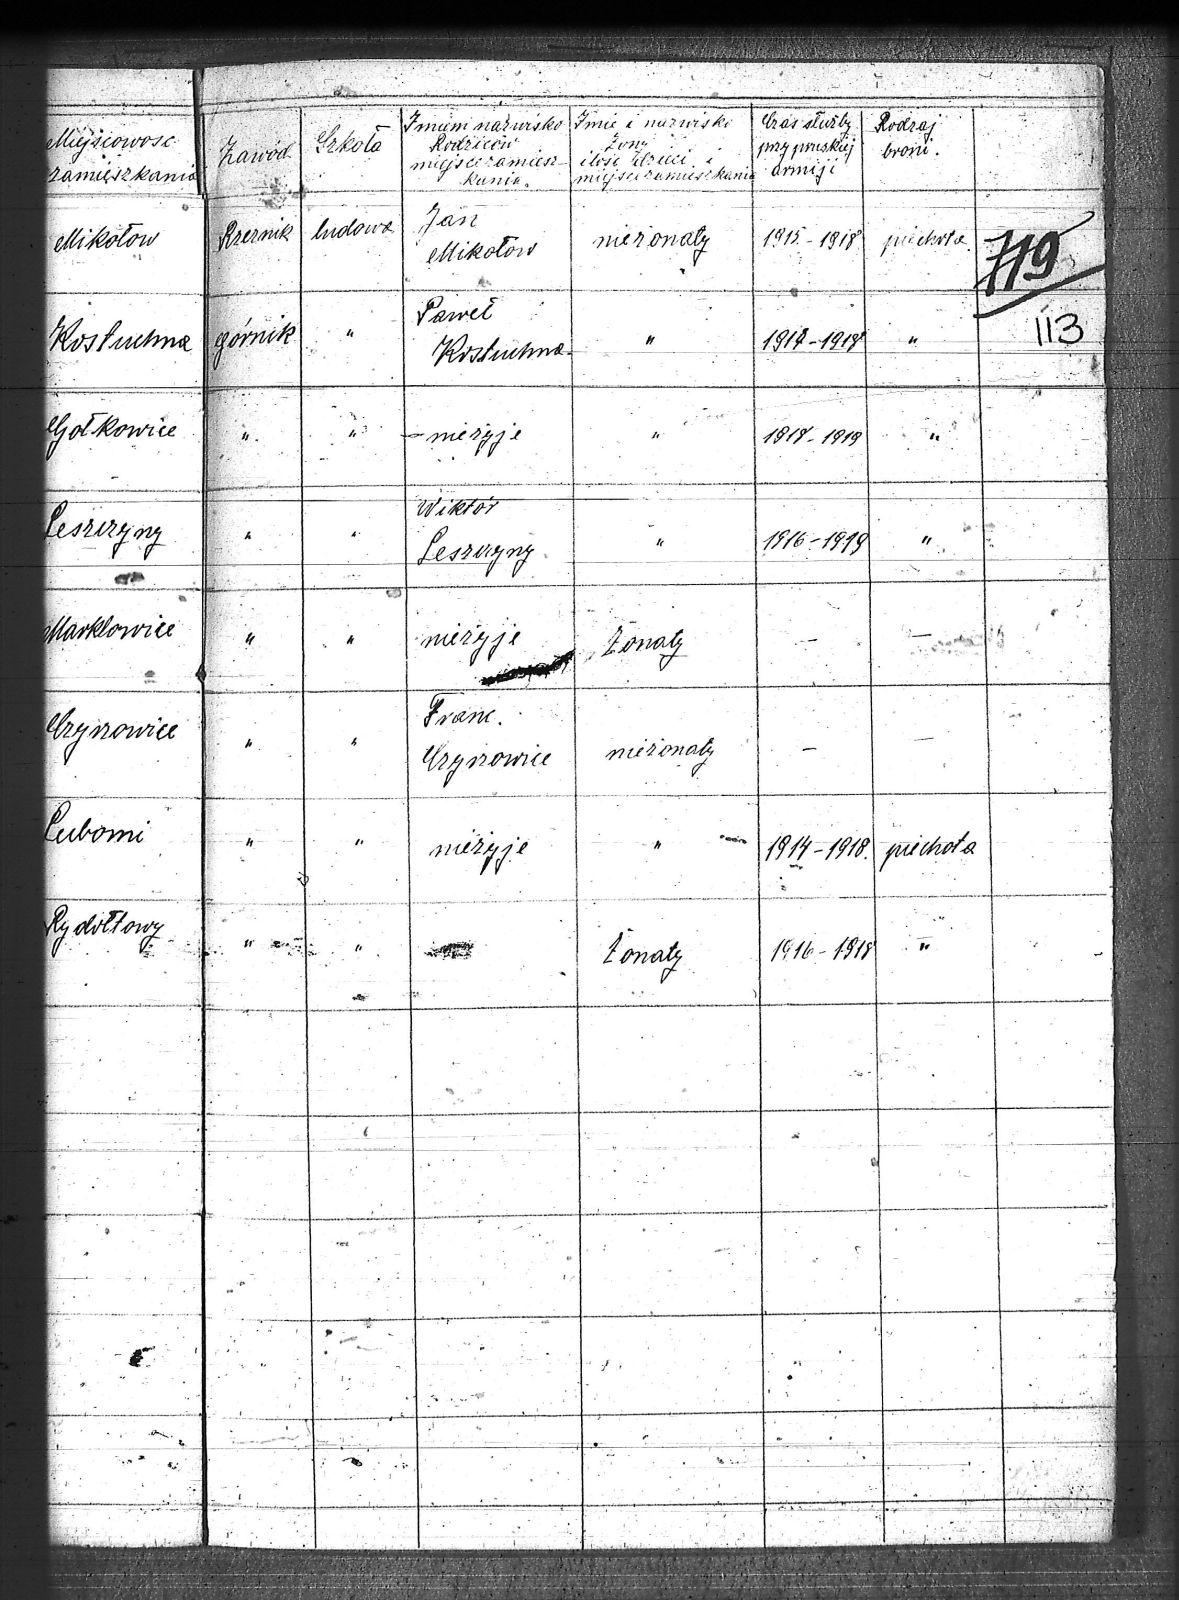 Miejscowosc zamieszkania | Zawód | Szkoła | Imieni nazwisko Rodziców miejsce zamieszkania. | Imie i nazwisko Żony ilość dzieci i miejsce zamieszkania | Czas służby przy pruskiej armiji | Rodzaj broni.
Mikołow | Rzeznik | ludowa | Jan Mikołow | nieżonaty | 1915-1918 | piechota | 719
Kostuchna | górnik | " | Paweł Kostuchna | " | 1918-1918 | " | 113
Gołkowice | " | " | nieżyje | " | 1918-1919 | "
Leszczyny | " | " | Wiktór Leszczyny | " | 1916-1919 | "
Marklowice | " | " | nieżyje | Żonaty | - | -
Czyzowice | " | " | Franc. Czyzowice | nieżonaty | - | -
Lubomi | " | " | nieżyje | " | 1914-1918. | piechota
Rydołtowy | " | " | Żonaty | 1916-1918 | "